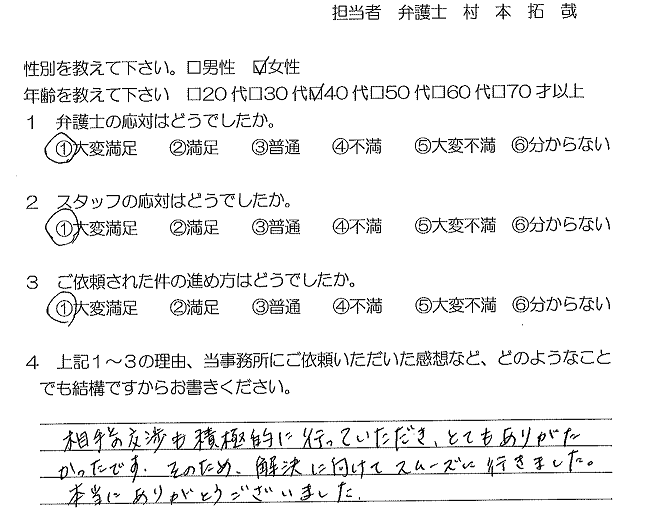 担当者 弁護士 村 本 拓 哉
性別を教えて下さい。□男性 ☑女性
年齢を教えて下さい □20代□30代☑40代□50代□60代□70才以上
1 弁護士の応対はどうでしたか。
①大変満足 ②満足 ③普通 ④不満 ⑤大変不満 ⑥分からない
2 スタッフの応対はどうでしたか。
①大変満足 ②満足 ③普通 ④不満 ⑤大変不満 ⑥分からない
3 ご依頼された件の進め方はどうでしたか。
①大変満足 ②満足 ③普通 ④不満 ⑤大変不満 ⑥分からない
4 上記1～3の理由、当事務所にご依頼いただいた感想など、どのようなこと
でも結構ですからお書きください。
相手の交渉も積極的に行っていただき、とてもありがた
かったです。そのため、解決に向けてスムーズに行きました。
本当にありがとうございいました。